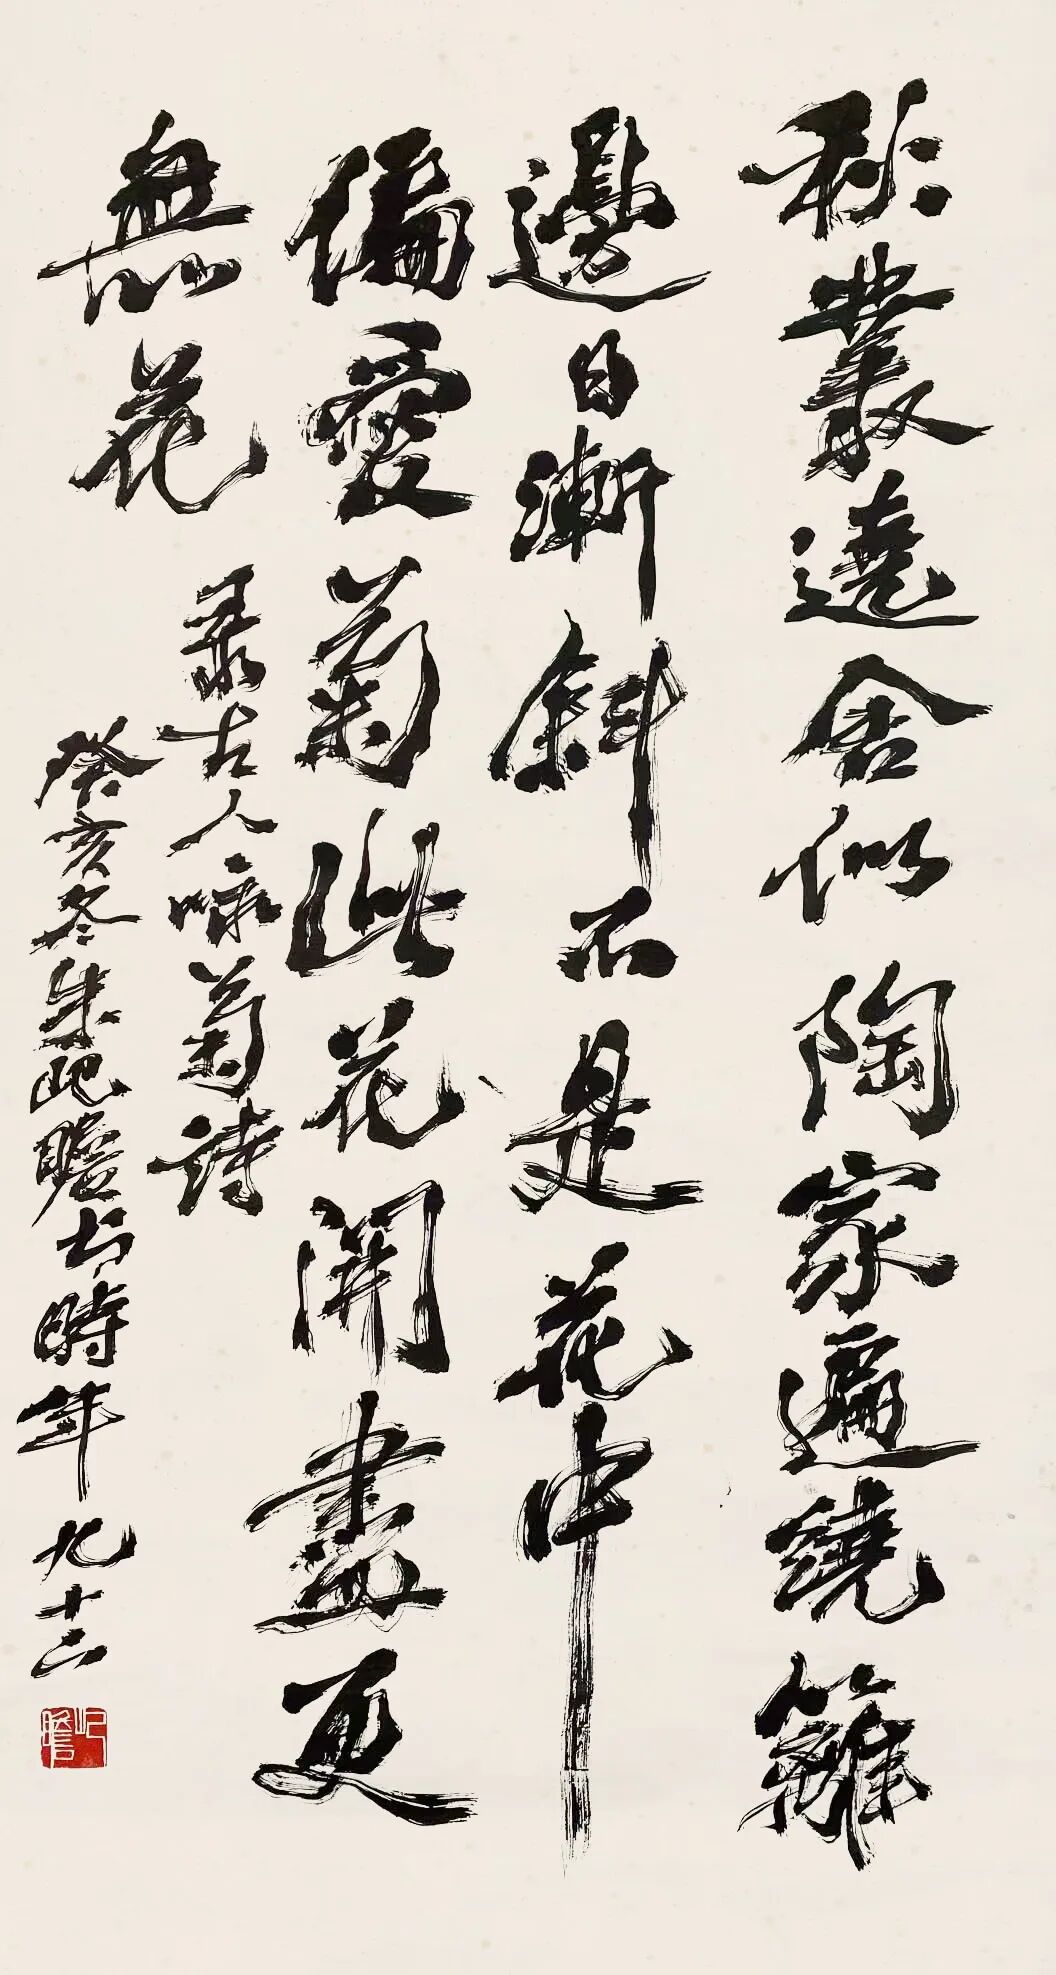 秋叢遶舍似陶家遍繞籬
邊日漸斜不是花中
偏愛菊此花開盡更
無花
录古人咏菊詩
癸亥冬朱屺瞻书時年九十二
屺瞻